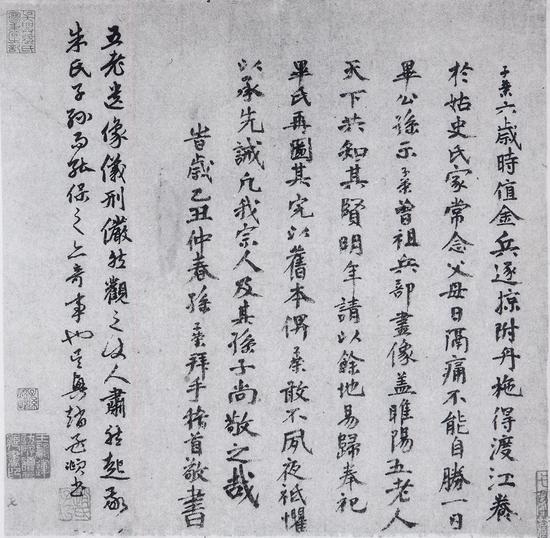 子榮六歲時值金兵逐掠附舟拖得渡江養
於姑史氏家常念父母日隔痛不能自勝一日
畢公孫示子榮曾祖兵部畫像蓋睢陽五老人
天下共知其賢明年請以餘地易歸奉祀
畢氏再圖其完以舊本俾榮敢不夙夜祗懼
以承先誠凡我宗人及其孫子尚敬之哉
旹歲乙丑仲春孫子榮拜手稽首敬書
五老遺像儀刑儼然觀之使人肅然起敬
朱氏子孫乃能保之亦奇事也吳興趙孟頫書